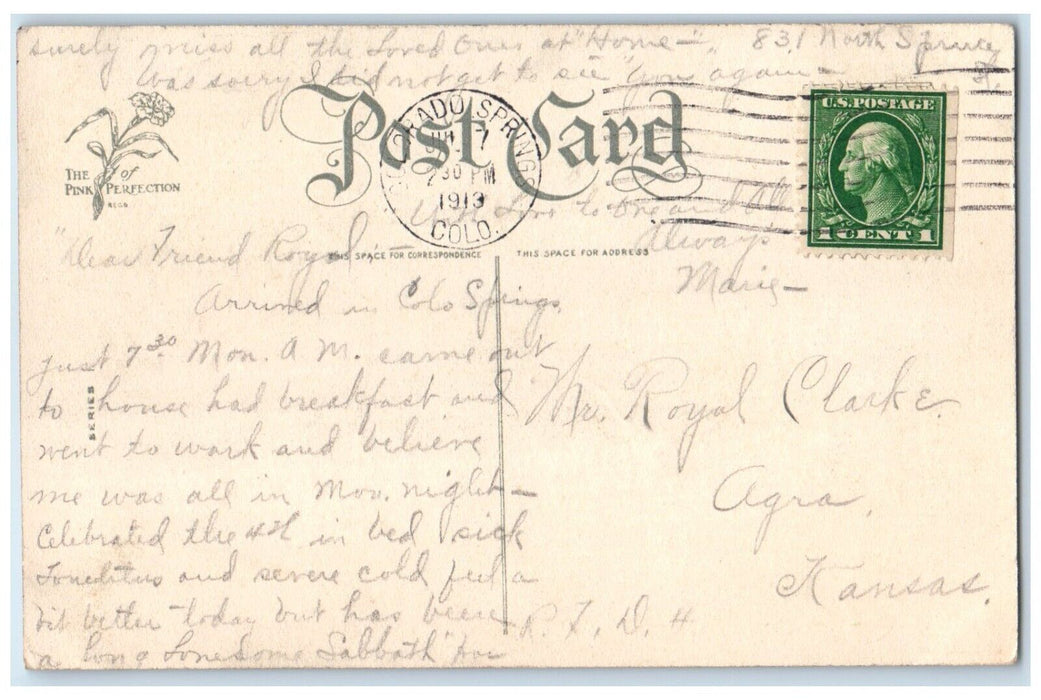 surely miss all the Loved Ones at "Home—". 831 North Spruce
Was sorry I did not get to see "you again— St.
Post Card
THE PINK of PERFECTION
REGD.
COLORADO SPRINGS
JUL 7
2 30 PM
1913
COLO.
U.S. POSTAGE
1 CENT 1
With Love to One and All
Always
Marie—
THIS SPACE FOR CORRESPONDENCE
THIS SPACE FOR ADDRESS
"Dear Friend Royal,
Arrived in Colo Springs,
just 7 30 Mon. A.M. came out
to house had breakfast and
went to work and believe
me was all in Mon. night—
Celebrated the 4th in bed sick
Toncilitus and severe cold feel a
bit better today but has been
a long Lonesome Sabbath" for
SERIES
Mr. Royal Clarke.
Agra,
Kansas.
R. F. D. 4